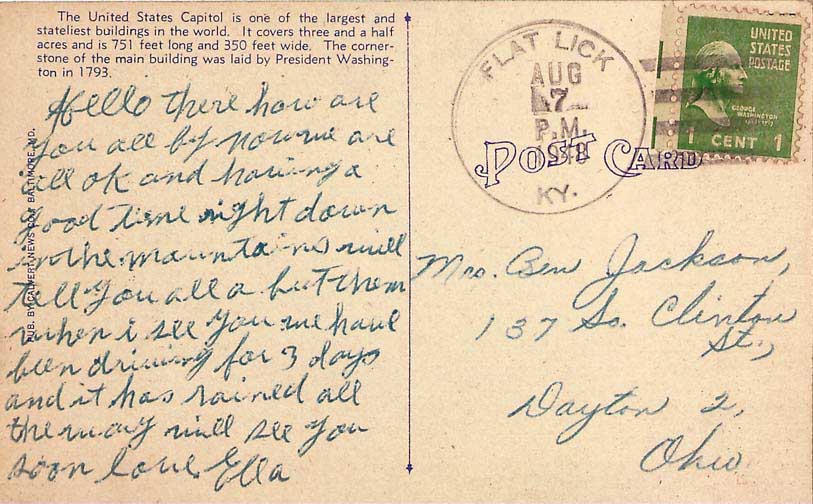 The United States Capitol is one of the largest and
stateliest buildings in the world. It covers three and a half
acres and is 751 feet long and 350 feet wide. The corner-
stone of the main building was laid by President Washing-
ton in 1793.
Hello there how are
you all by now we are
all ok and having a
good time right down
in the mountains will
tell you all a but them
when i see you we have
been driving for 3 days
and it has rained all
the way will see you
soon love Ella
PUB. BY CALVERT NEWS CO., BALTIMORE, MD.
FLAT LICK
AUG
7
P.M.
1948
KY.
UNITED
STATES
POSTAGE
GEORGE
WASHINGTON
1 CENT 1
POST CARD
Mrs. Ben Jackson,
137 So. Clinton
St.,
Dayton 2,
Ohio